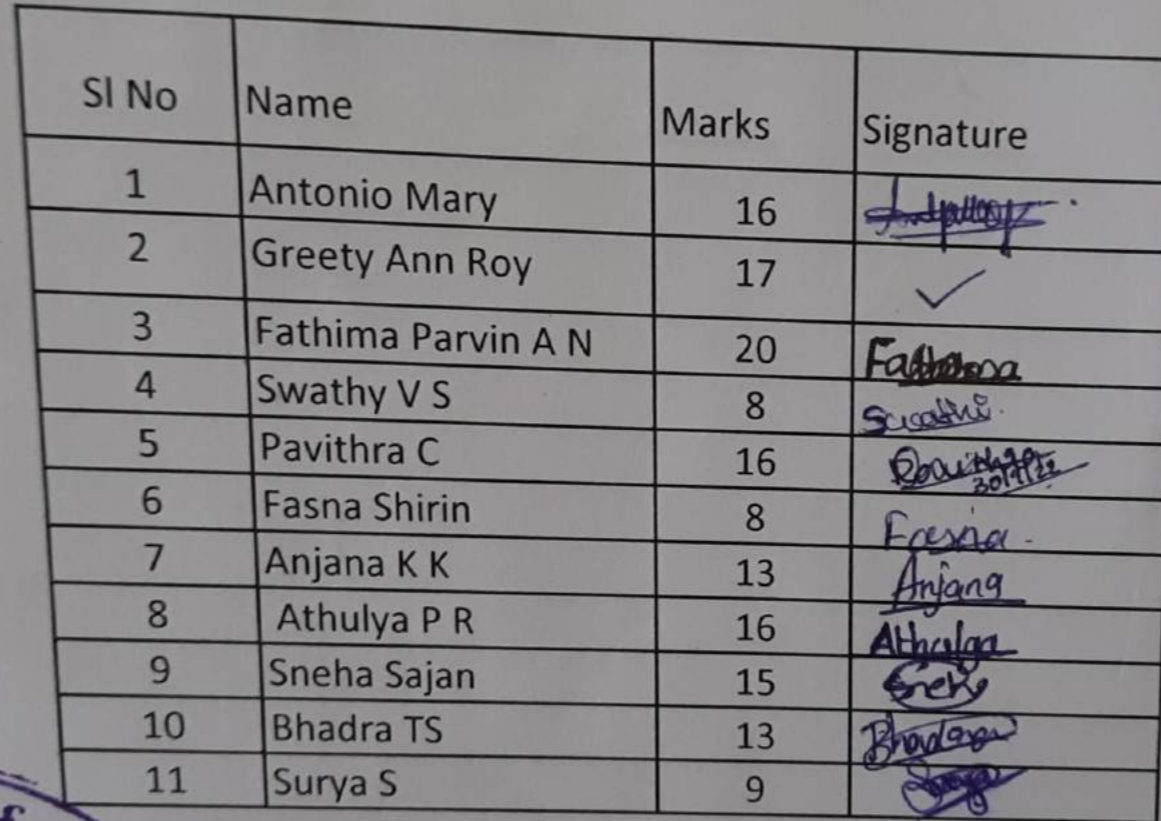 Sl No Name Marks Signature
1 Antonio Mary 16
2 Greety Ann Roy 17
3 Fathima Parvin A N 20 Fathima
4 Swathy V S 8 Swathi
5 Pavithra C 16 Pavithra
6 Fasna Shirin 8 Fasna
7 Anjana K K 13 Anjana
8 Athulya P R 16 Athulya
9 Sneha Sajan 15 Sneha
10 Bhadra TS 13
11 Surya S 9